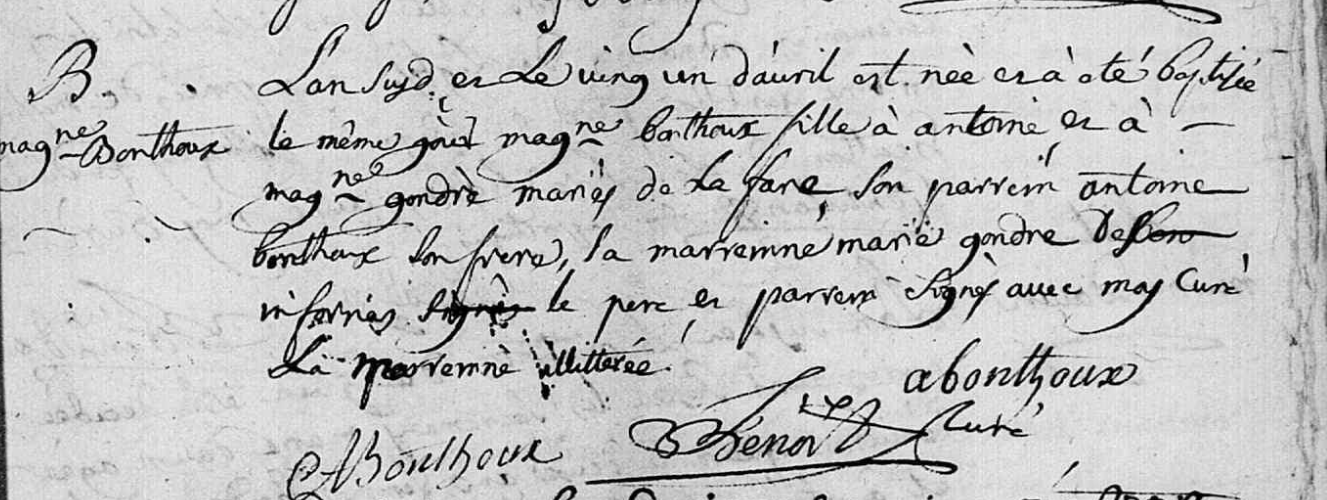 B
magne Bonthoux
L'an susd. et Le vingt un d'avril est née et à été baptisée
le même jour magne bonthoux fille à antoine et à
magne gondrè mariés de La fare, son parrein antoine
bonthoux son frere, la marreinne marie gondre
le pere et parrein signés avec moy Curé
La marreinne illitterée.
abonthoux
Curé
ABonthoux